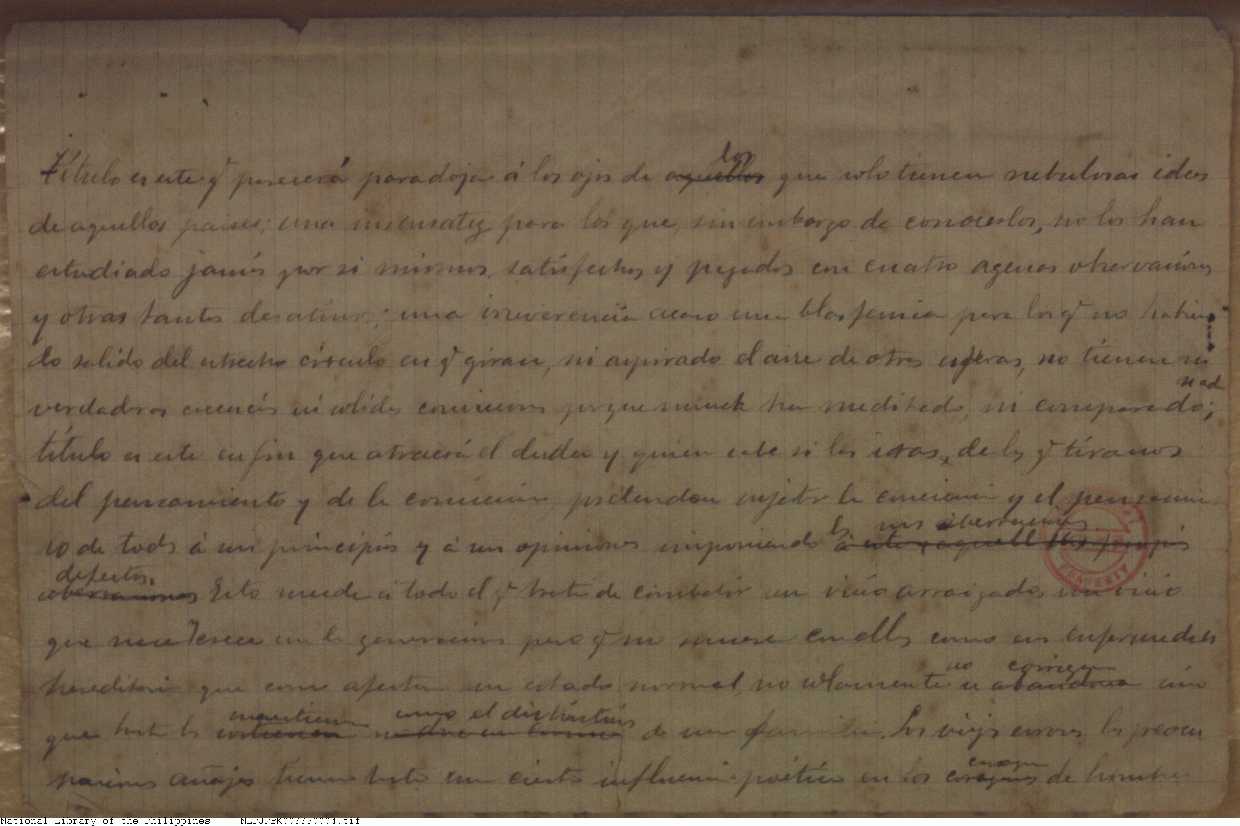 Título es este q̃ parecerá paradoja á los ojos de aquellos los que solo tienen nebulosas ideas
de aquellos paises; una insensatez para los que, sin embargo de conocerlos, no los han
estudiado jamás por si mismos, satisfechos y pagados con cuatro agenas observaciones
y otras tantas desatinos; una irreverencia acaso una blasfemia para los q̃ no habien
do salido del estrecho círculo en q̃ giran, ni aspirado el aire de otras esferas, no tienen ni
verdaderas creencias ni solidas convicciones porque nunca han meditado, ni comparado;
título es este en fin que atraerá el desden y quien sabe si las iras, de los q̃ tiranos
del pensamiento y de la conviccion pretenden sujetar la conciencia y el pensamien
to de todos á sus principios y á sus opiniones imponiendo sus aberraciones
defectos. Esto sucede á todo el q̃ trata de combatir un vicio arraigado, un vicio
que nace crece en la generacion pero q̃ no muere con ellas como las enfermedades
hereditarias que como afectan un estado normal no solamente no se abandona corrigen sino
que hasta las mantienen como el distintivo de una familia. Los viejos errores, las preocu
paciones añejas tienen hasta una cierta influencia poética en los corazones de hombres
National Library of the Philippines